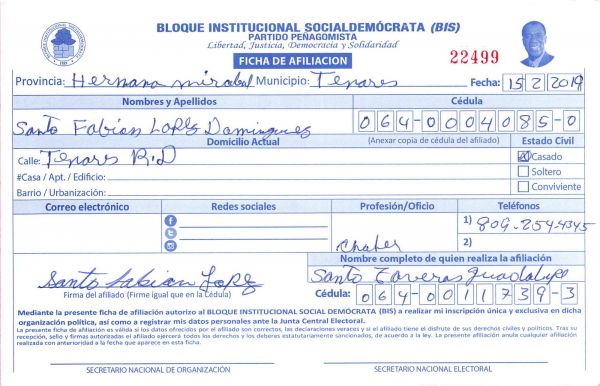 BLOQUE INSTITUCIONAL SOCIALDEMÓCRATA (BIS)
PARTIDO PEÑAGOMISTA
Libertad, Justicia, Democracia y Solidaridad
FICHA DE AFILIACION
22499
Provincia: Hermana mirabal Municipio: Tenares Fecha: 15 2 2019
Nombres y Apellidos Cédula
Santo Fabian Lopez Dominguez 064-0004085-0
Domicilio Actual (Anexar copia de cédula del afiliado) Estado Civil
Calle: Tenares R.D Casado
#Casa / Apt. / Edificio: Soltero
Barrio / Urbanización: Conviviente
Correo electrónico Redes sociales Profesión/Oficio Teléfonos
1) 809-254-4345
2)
Nombre completo de quien realiza la afiliación
Santo Fabian Lopez Santo Taveras Guadalupe
Firma del afiliado (Firme igual que en la Cédula) Cédula: 064-0011739-3
Mediante la presente ficha de afiliación autorizo al BLOQUE INSTITUCIONAL SOCIAL DEMÓCRATA (BIS) a realizar mi inscripción única y exclusiva en dicha
organización política, así como a registrar mis datos personales ante la Junta Central Electoral.
La presente ficha de afiliación es válida si los datos ofrecidos por el afiliado son correctos, las declaraciones veraces y si el afiliado tiene el disfrute de sus derechos civiles y políticos. Tras su
recepción, sello y firmas autorizadas el afiliado ejercerá todos los derechos y los deberes estatutariamente sancionados, de acuerdo a la ley. La presente afiliación anula cualquier afiliación
realizada con anterioridad a la fecha que aparece en esta ficha.
SECRETARIO NACIONAL DE ORGANIZACIÓN SECRETARIO NACIONAL ELECTORAL